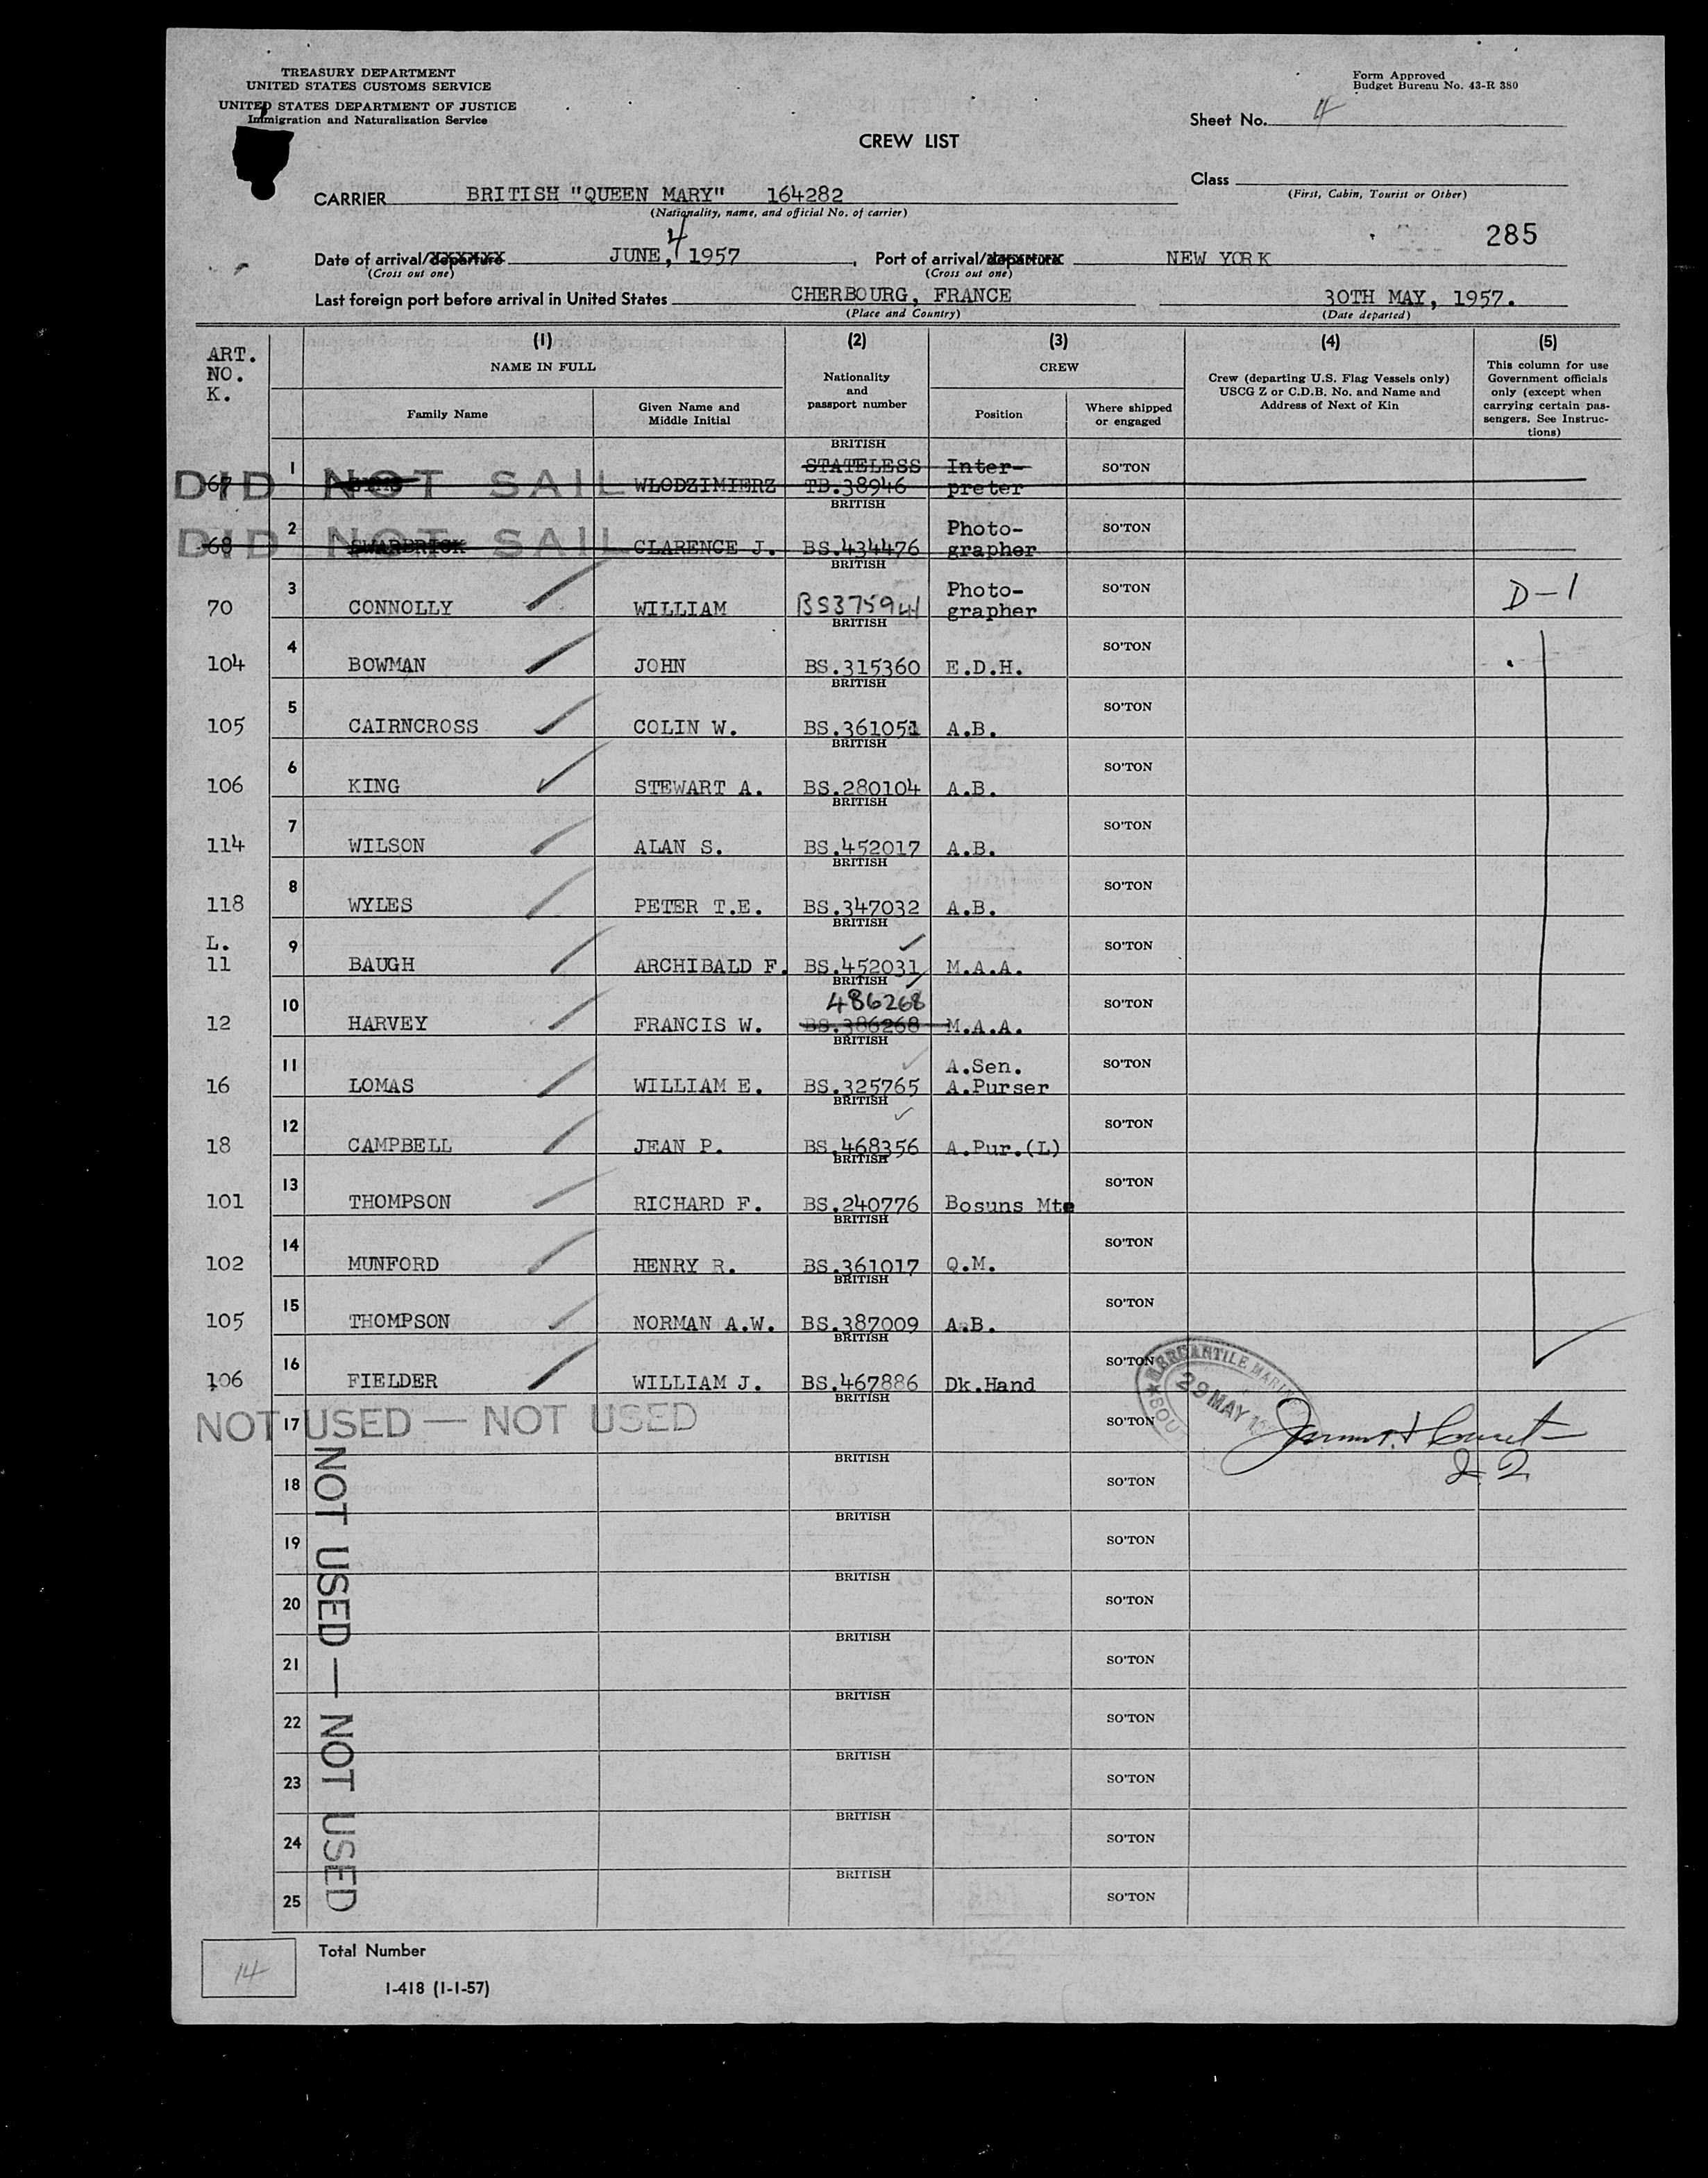 TREASURY DEPARTMENT
UNITED STATES CUSTOMS SERVICE
UNITED STATES DEPARTMENT OF JUSTICE
Immigration and Naturalization Service
Form Approved
Budget Bureau No. 43-R 380
Sheet No. 4
CREW LIST
Class
(First, Cabin, Tourist or Other)
CARRIER BRITISH "QUEEN MARY" 164282
(Nationality, name, and official No. of carrier)
285
Date of arrival/departure JUNE, 4 1957. Port of arrival/departure NEW YORK
(Cross out one) (Cross out one)
Last foreign port before arrival in United States CHERBOURG, FRANCE 30TH MAY, 1957.
(Place and Country) (Date departed)
ART. NO. K.
(1) NAME IN FULL
Family Name
Given Name and Middle Initial
(2) Nationality and passport number
(3) CREW
Position
Where shipped or engaged
(4) Crew (departing U.S. Flag Vessels only) USCG Z or C.D.B. No. and Name and Address of Next of Kin
(5) This column for use Government officials only (except when carrying certain passengers. See Instructions)
67 1 DID NOT SAIL WLODZIMIERZ BRITISH STATELESS TD.38946 Inter-preter SO'TON
68 2 DID NOT SAIL SWARBRICK CLARENCE J. BRITISH BS.434476 Photo-grapher SO'TON
70 3 CONNOLLY WILLIAM BRITISH BS375941 Photo-grapher SO'TON D-1
104 4 BOWMAN JOHN BRITISH BS.315360 E.D.H. SO'TON
105 5 CAIRNCROSS COLIN W. BRITISH BS.361051 A.B. SO'TON
106 6 KING STEWART A. BRITISH BS.280104 A.B. SO'TON
114 7 WILSON ALAN S. BRITISH BS.452017 A.B. SO'TON
118 8 WYLES PETER T.E. BRITISH BS.347032 A.B. SO'TON
L. 11 9 BAUGH ARCHIBALD F. BRITISH BS.452031 M.A.A. SO'TON
12 10 HARVEY FRANCIS W. BRITISH 486268 BS.386268 M.A.A. SO'TON
16 11 LOMAS WILLIAM E. BRITISH BS.325765 A.Sen. A.Purser SO'TON
18 12 CAMPBELL JEAN P. BRITISH BS.468356 A.Pur.(L) SO'TON
101 13 THOMPSON RICHARD F. BRITISH BS.240776 Bosuns Mte SO'TON
102 14 MUNFORD HENRY R. BRITISH BS.361017 Q.M. SO'TON
105 15 THOMPSON NORMAN A.W. BRITISH BS.387009 A.B. SO'TON
106 16 FIELDER WILLIAM J. BRITISH BS.467886 Dk.Hand SO'TON
MERCANTILE MARINE
29 MAY
NOT USED — NOT USED
17 BRITISH SO'TON
NOT USED — NOT USED
18 BRITISH SO'TON
19 BRITISH SO'TON
20 BRITISH SO'TON
21 BRITISH SO'TON
22 BRITISH SO'TON
23 BRITISH SO'TON
24 BRITISH SO'TON
25 BRITISH SO'TON
14 Total Number
I-418 (1-1-57)